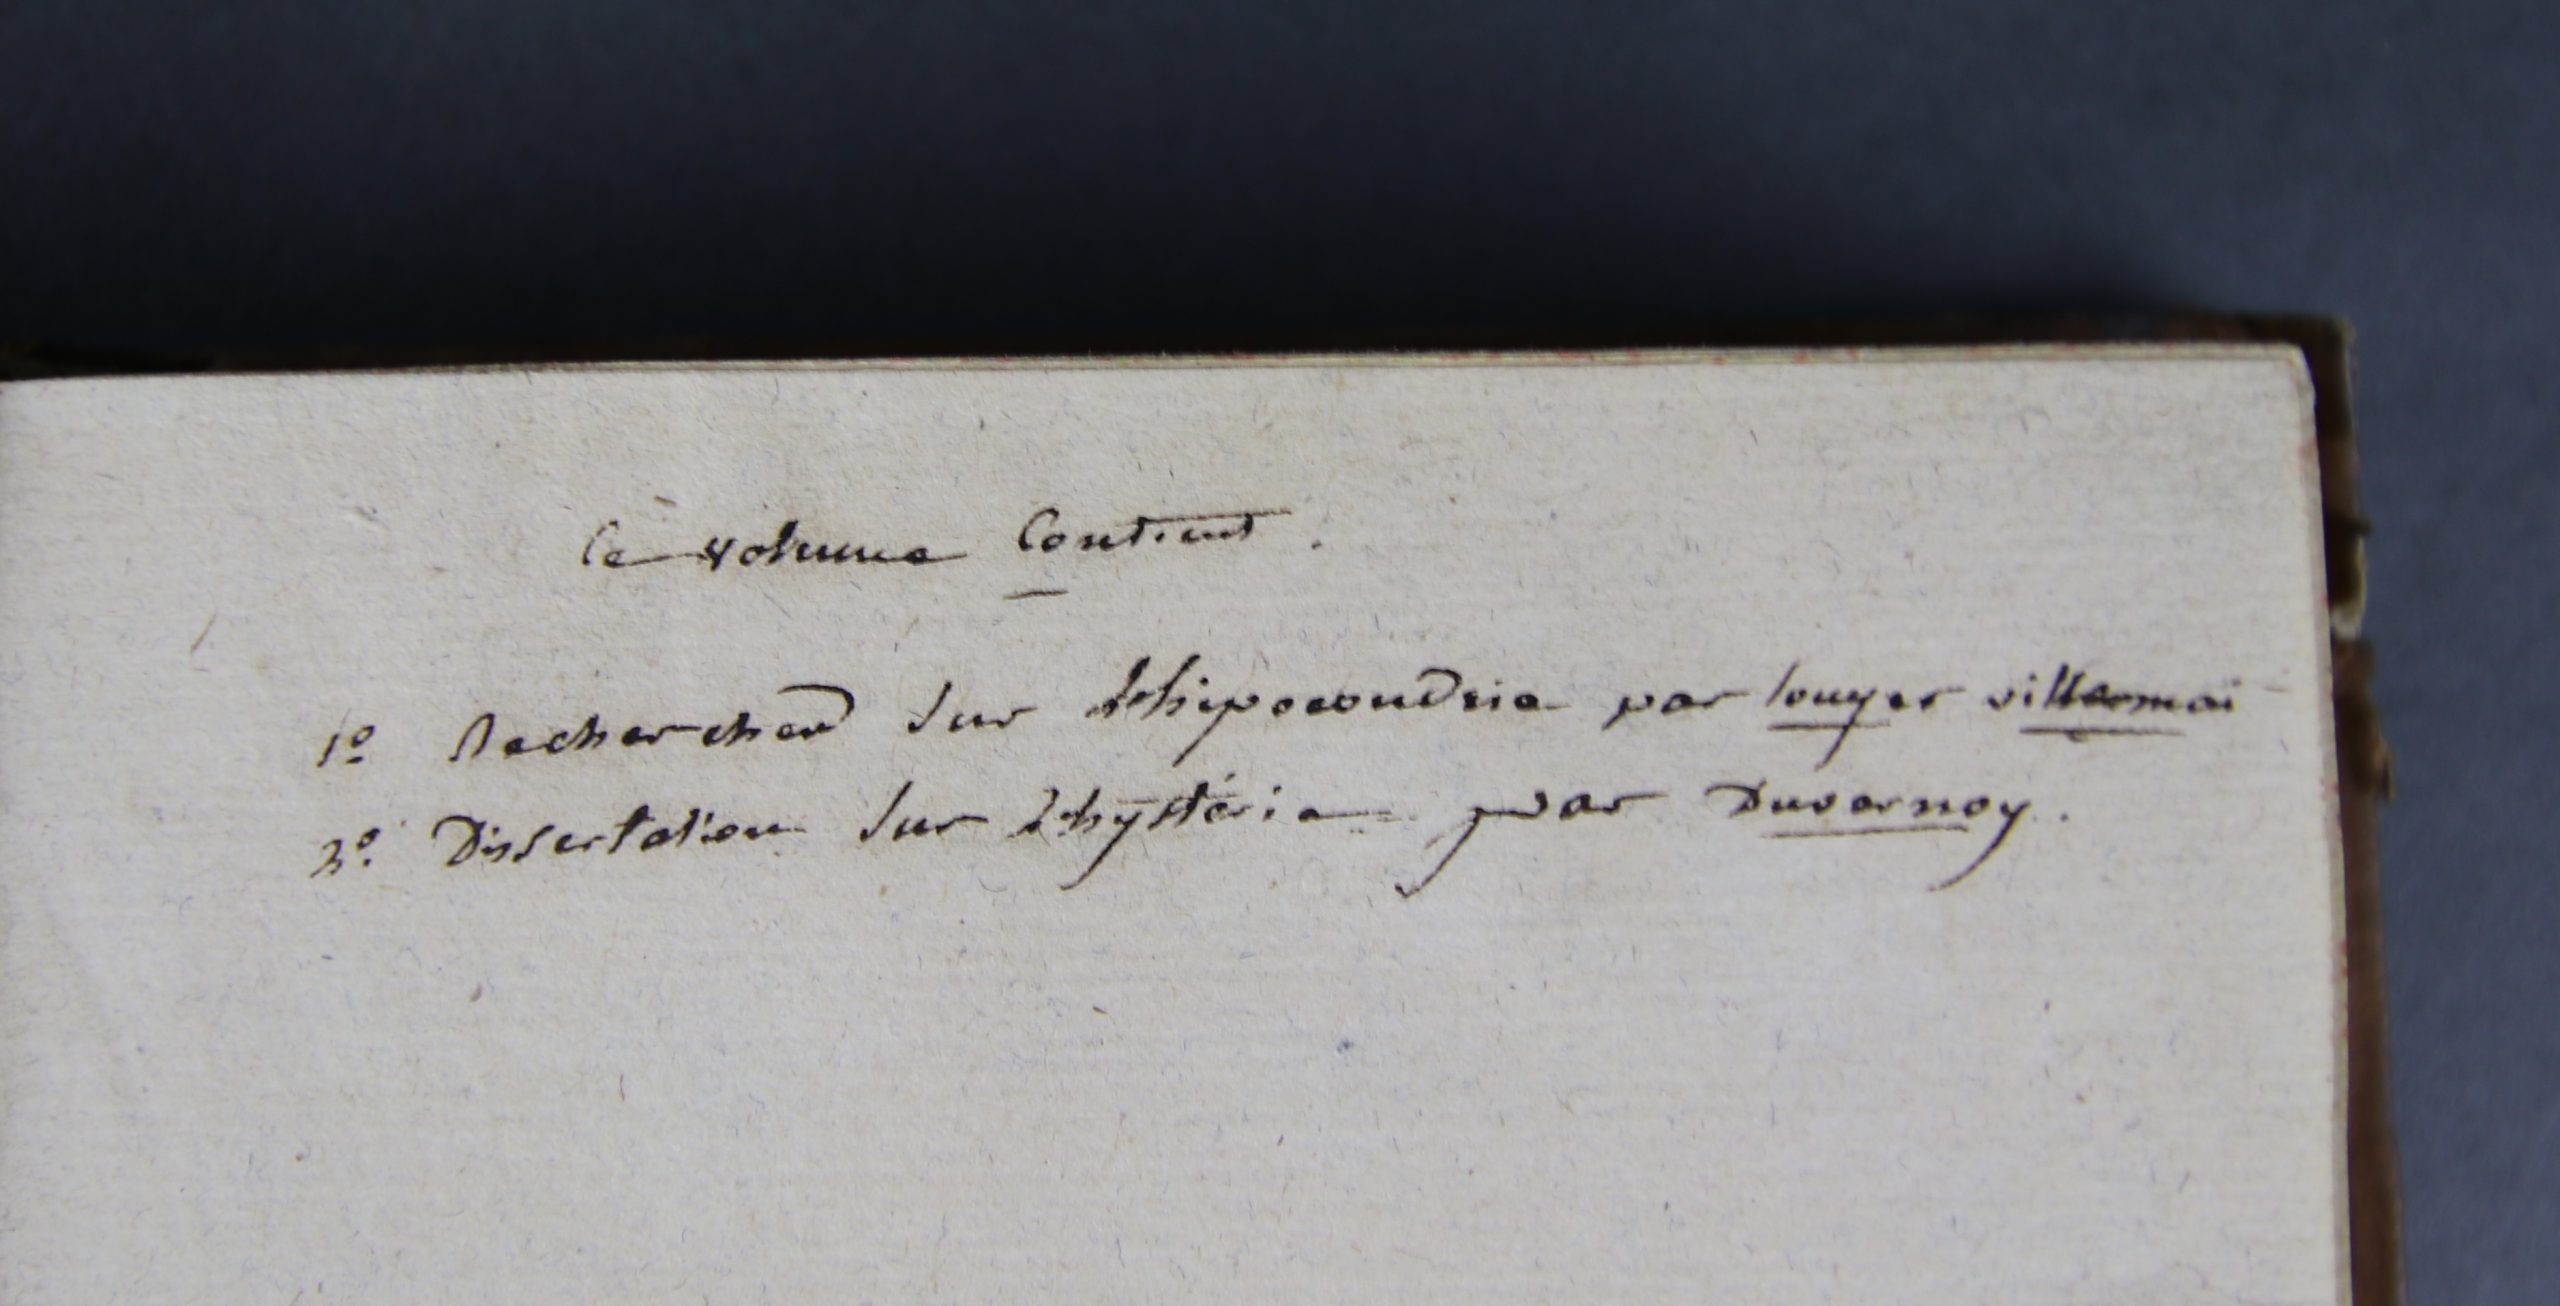 Ce volume Contient.
1o Recherches sur l'hipocondrie par louyer villermai
2o. Dissertation sur l'hystérie par Duvernoy.